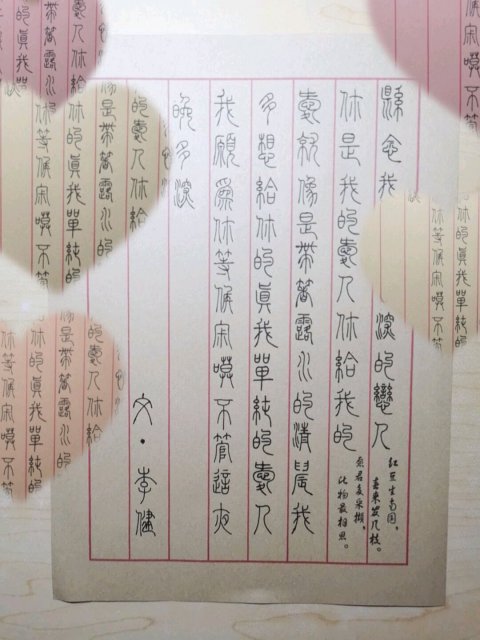 縣念我 深的戀人
你是我的愛人你給我的
愛就像是帶著露水的清晨我
多想給你的真我單純的愛人
我願為你等候寂寞不管這夜
晚多深
文·李健
紅豆生南国，
春来发几枝。
愿君多采撷，
此物最相思。